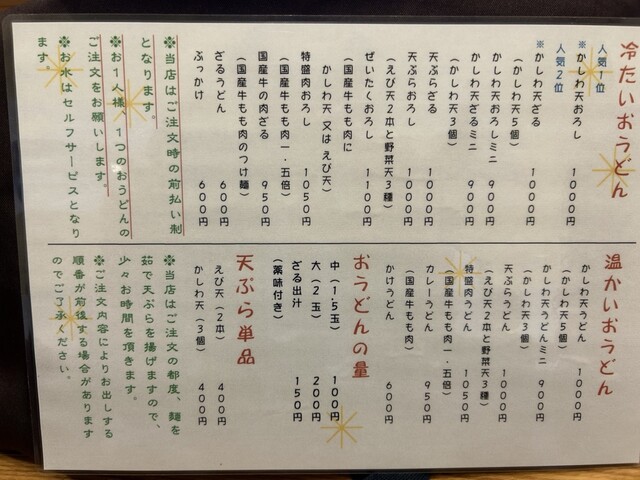 冷たいおうどん
人気1位
※かしわ天おろし 1000円
人気2位
※かしわ天ざる 1000円
(かしわ天5個)
かしわ天おろしミニ 900円
かしわ天ざるミニ 900円
(かしわ天3個)
天ぷらざる 1000円
天ぷらおろし 1000円
(えび天2本と野菜天3種)
ぜいたくおろし 1100円
(国産牛もも肉に
かしわ天 又は えび天)
特盛肉おろし 1050円
(国産牛もも肉一・五倍)
国産牛の肉ざる 950円
(国産牛もも肉のつけ麺)
ざるうどん 600円
ぶっかけ 600円
※当店はご注文時の前払い制
となります。
※お1人様、1つのおうどんの
ご注文をお願いします。
※お水はセルフサービスとなり
ます。
温かいおうどん
かしわ天うどん 1000円
(かしわ天5個)
かしわ天うどんミニ 900円
(かしわ天3個)
天ぷらうどん 1000円
(えび天2本と野菜天3種)
特盛肉うどん 1050円
(国産牛もも肉一・五倍)
カレーうどん 950円
(国産牛もも肉)
かけうどん 600円
おうどんの量
中(1.5玉) 100円
大(2玉) 200円
ざる出汁 150円
(薬味付き)
天ぷら単品
えび天(2本) 400円
かしわ天(3個) 400円
※当店はご注文の都度、麺を
茹で天ぷらを揚げますので、
少々お時間を頂きます。
※ご注文内容によりお出しする
順番が前後する場合があります
のでご了承ください。